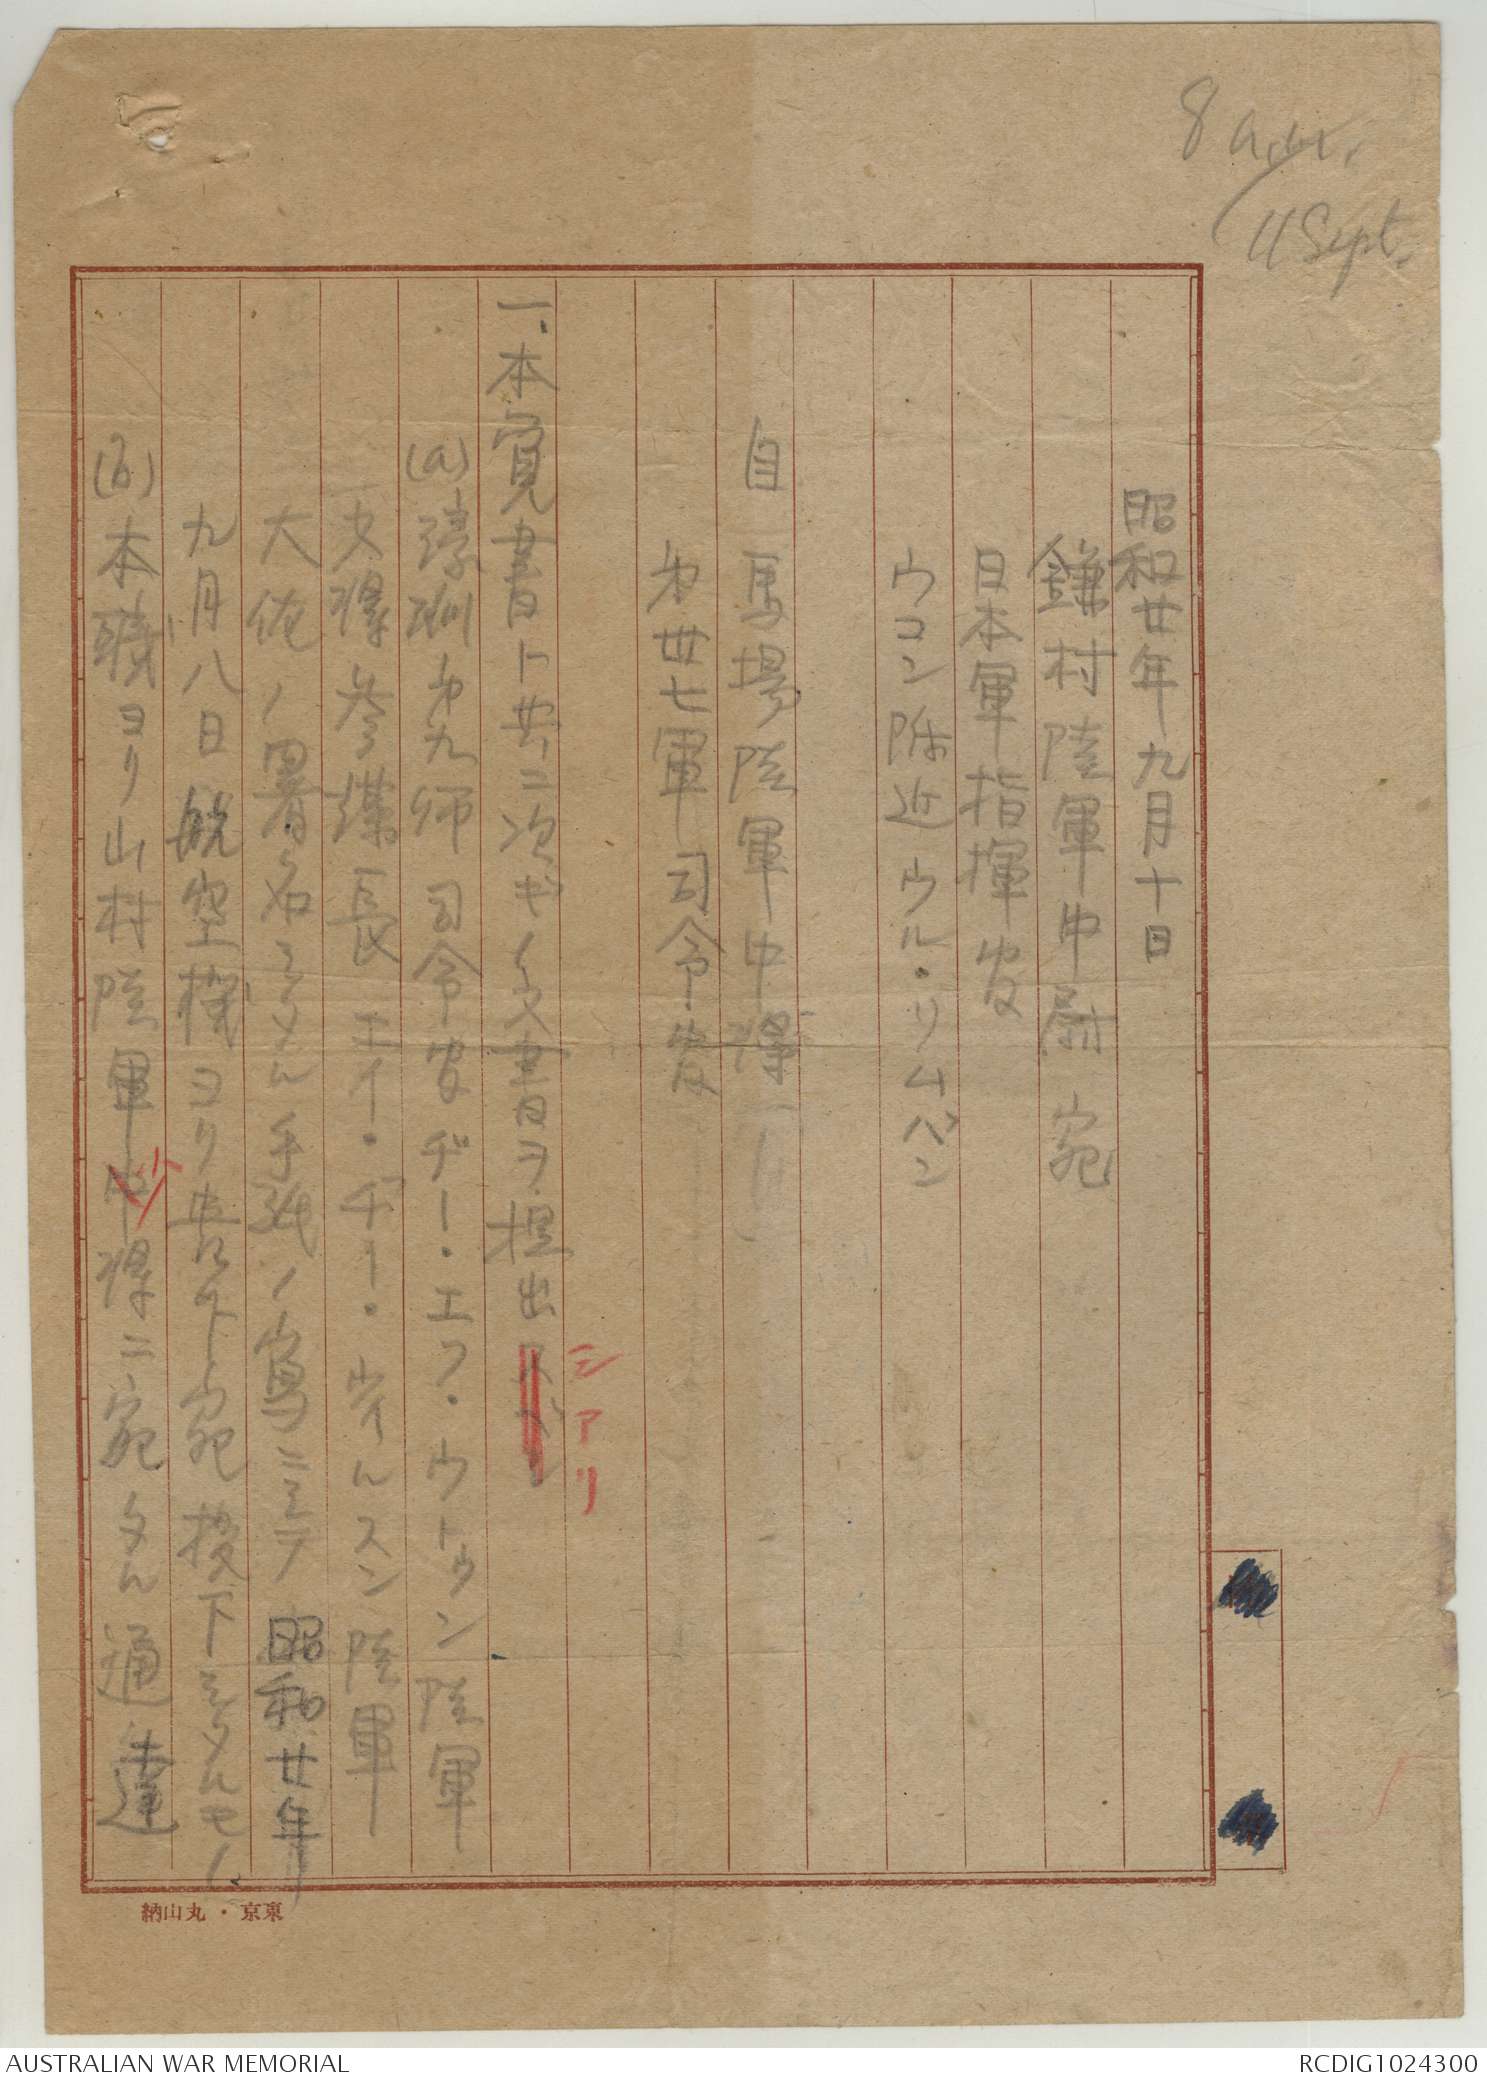 8 a.m.
11 Sept.
昭和廿年九月十日
鎌村陸軍中尉宛
日本軍指揮官
ウコン附近ウル・リムバン
自 馬場陸軍中将
第卅七軍司令官
一、本覚書ト共ニ次ギノ文書ヲ提出
シアリ
(a)濠洲第九師司令官ヂー・エフ・ウトゥン陸軍
少将参謀長エイ・ヂー・ウイルスン陸軍
大佐ノ署名シタル手紙ノ寫ニシテ昭和廿年
九月八日航空機ヨリ貴下宛投下シタルモノ
(b)本職ヨリ山村陸軍少将ニ宛タル通達
東京・丸山納
AUSTRALIAN WAR MEMORIAL
RCDIG1024300